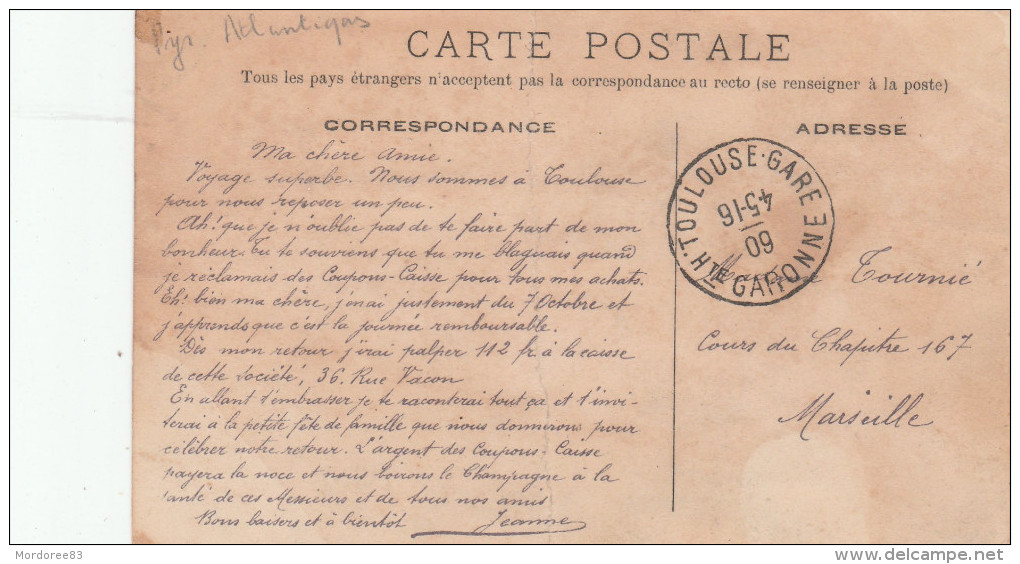 Pyr. Atlantiques
CARTE POSTALE
Tous les pays étrangers n'acceptent pas la correspondance au recto (se renseigner à la poste)
CORRESPONDANCE
Ma chère Amie.
Voyage superbe. Nous sommes à Toulouse
pour nous reposer un peu.
Ah! que je n'oublie pas de te faire part de mon
bonheur. Tu te souviens que tu me blaguais quand
je réclamais des Coupons-Caisse pour tous mes achats.
Eh! bien ma chère, j'en ai justement du 7 Octobre et
j'apprends que c'est la journée remboursable.
Dès mon retour j'irai palper 112 fr. à la caisse
de cette Société, 36. Rue Vacon
En allant t'embrasser je te raconterai tout ça et t'invi-
terai à la petite fête de famille que nous donnerons pour
célébrer notre retour. L'argent des Coupons-Caisse
payera la noce et nous boirons le Champagne à la
santé de ces Messieurs et de tous nos amis
Bons baisers et à bientôt Jeanne
ADRESSE
TOULOUSE-GARE
45-16
09
Hte GARONNE
Tournié
Cours du Chapitre 167
Marseille
Mordoree83
www.delcampe.net